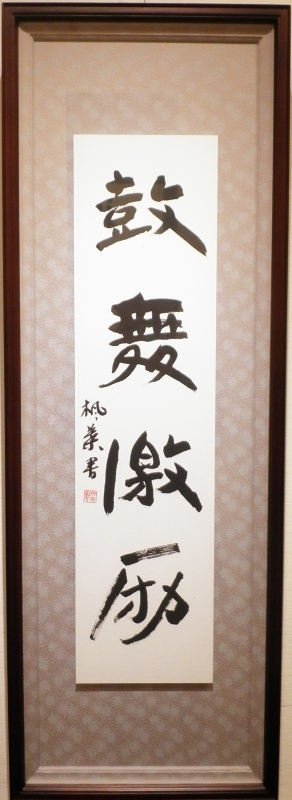 鼓舞激励
枫葉書